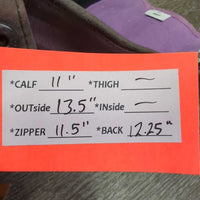 *CALF 11" *THIGH ~
*OUTside 13.5" *INside ~
*ZIPPER 11.5" *BACK 12.25"